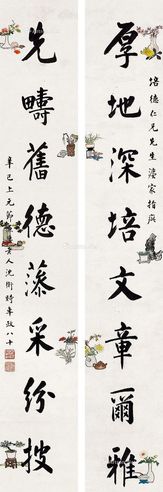 厚地深培文章爾雅
培德仁兄先生灋家指
先疇舊德藻采紛披
辛巳上元節
人沈衛時年政八十